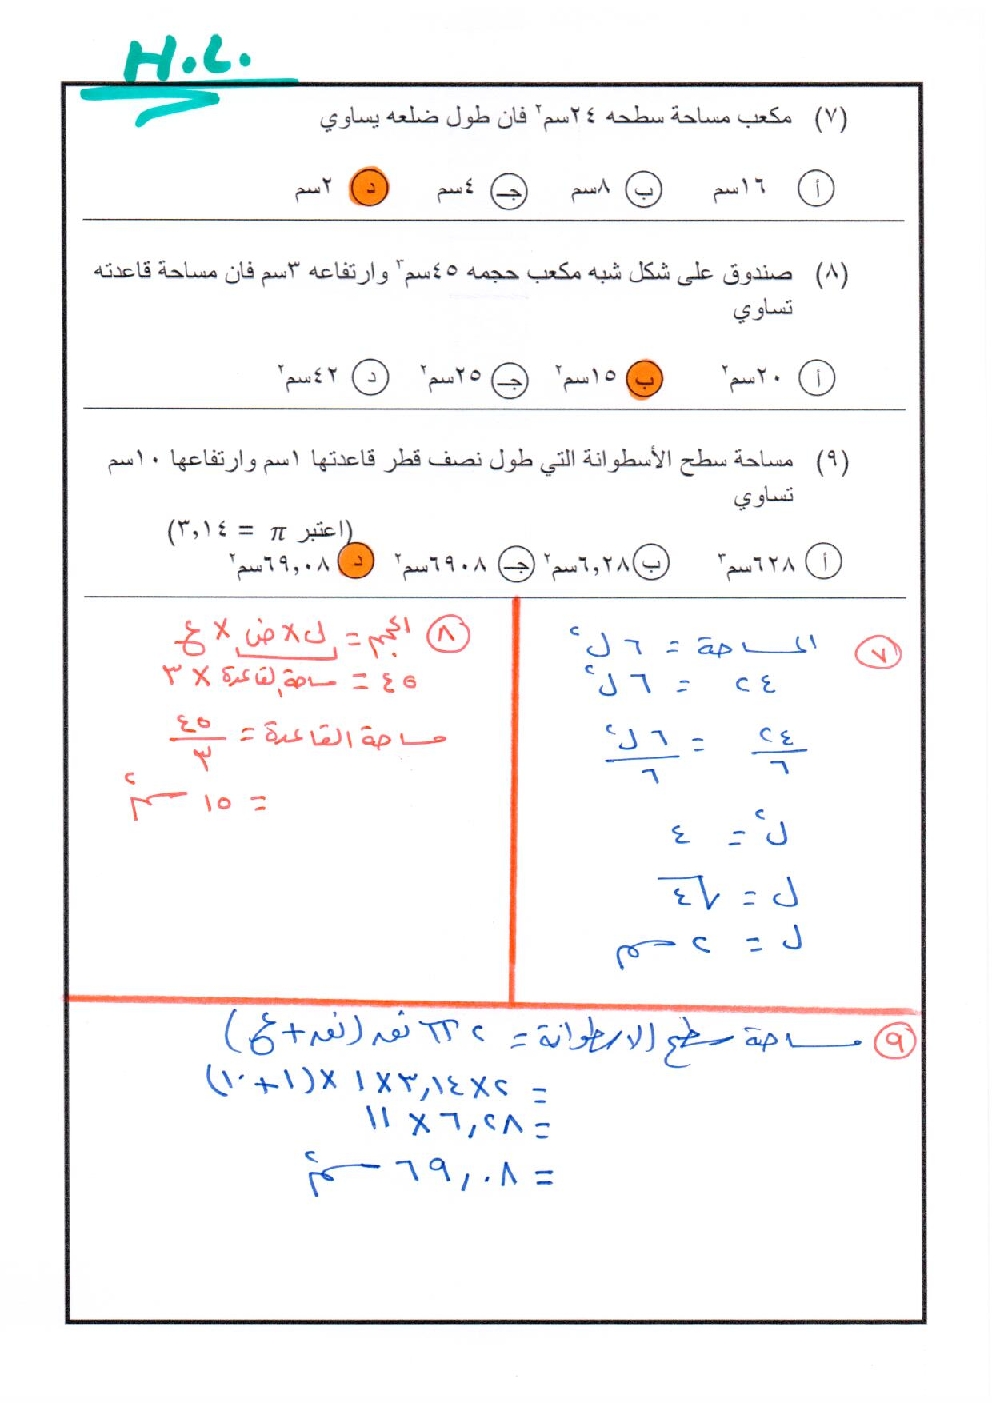 H.L.
(٧) مكعب مساحة سطحه ٢٤سم٢ فان طول ضلعه يساوي
أ ١٦سم ب ٨سم جـ ٤سم د ٢سم
(٨) صندوق على شكل شبه مكعب حجمه ٤٥سم٣ وارتفاعه ٣سم فان مساحة قاعدته
تساوي
أ ٢٠سم٢ ب ١٥سم٢ جـ ٢٥سم٢ د ٤٢سم٢
(٩) مساحة سطح الأسطوانة التي طول نصف قطر قاعدتها ١سم وارتفاعها ١٠سم
تساوي
(اعتبر π = ٣,١٤)
أ ٦٢٨سم٣ ب ٦,٢٨سم٢ جـ ٦٩٠٨سم٢ د ٦٩,٠٨سم٢
٧ المساحة = ٦ ل٢
٢٤ = ٦ ل٢
٢٤/٦ = ٦ ل٢/٦
ل٢ = ٤
ل = √٤
ل = ٢ سم
٨ الحجم = ل × ض × ع
٤٥ = مساحة القاعدة × ٣
مساحة القاعدة = ٤٥/٣
= ١٥ سم٢
٩ مساحة سطح الاسطوانة = ٢ π نق (نق + ع)
= ٢ × ٣,١٤ × ١ × (١ + ١٠)
= ٦,٢٨ × ١١
= ٦٩,٠٨ سم٢